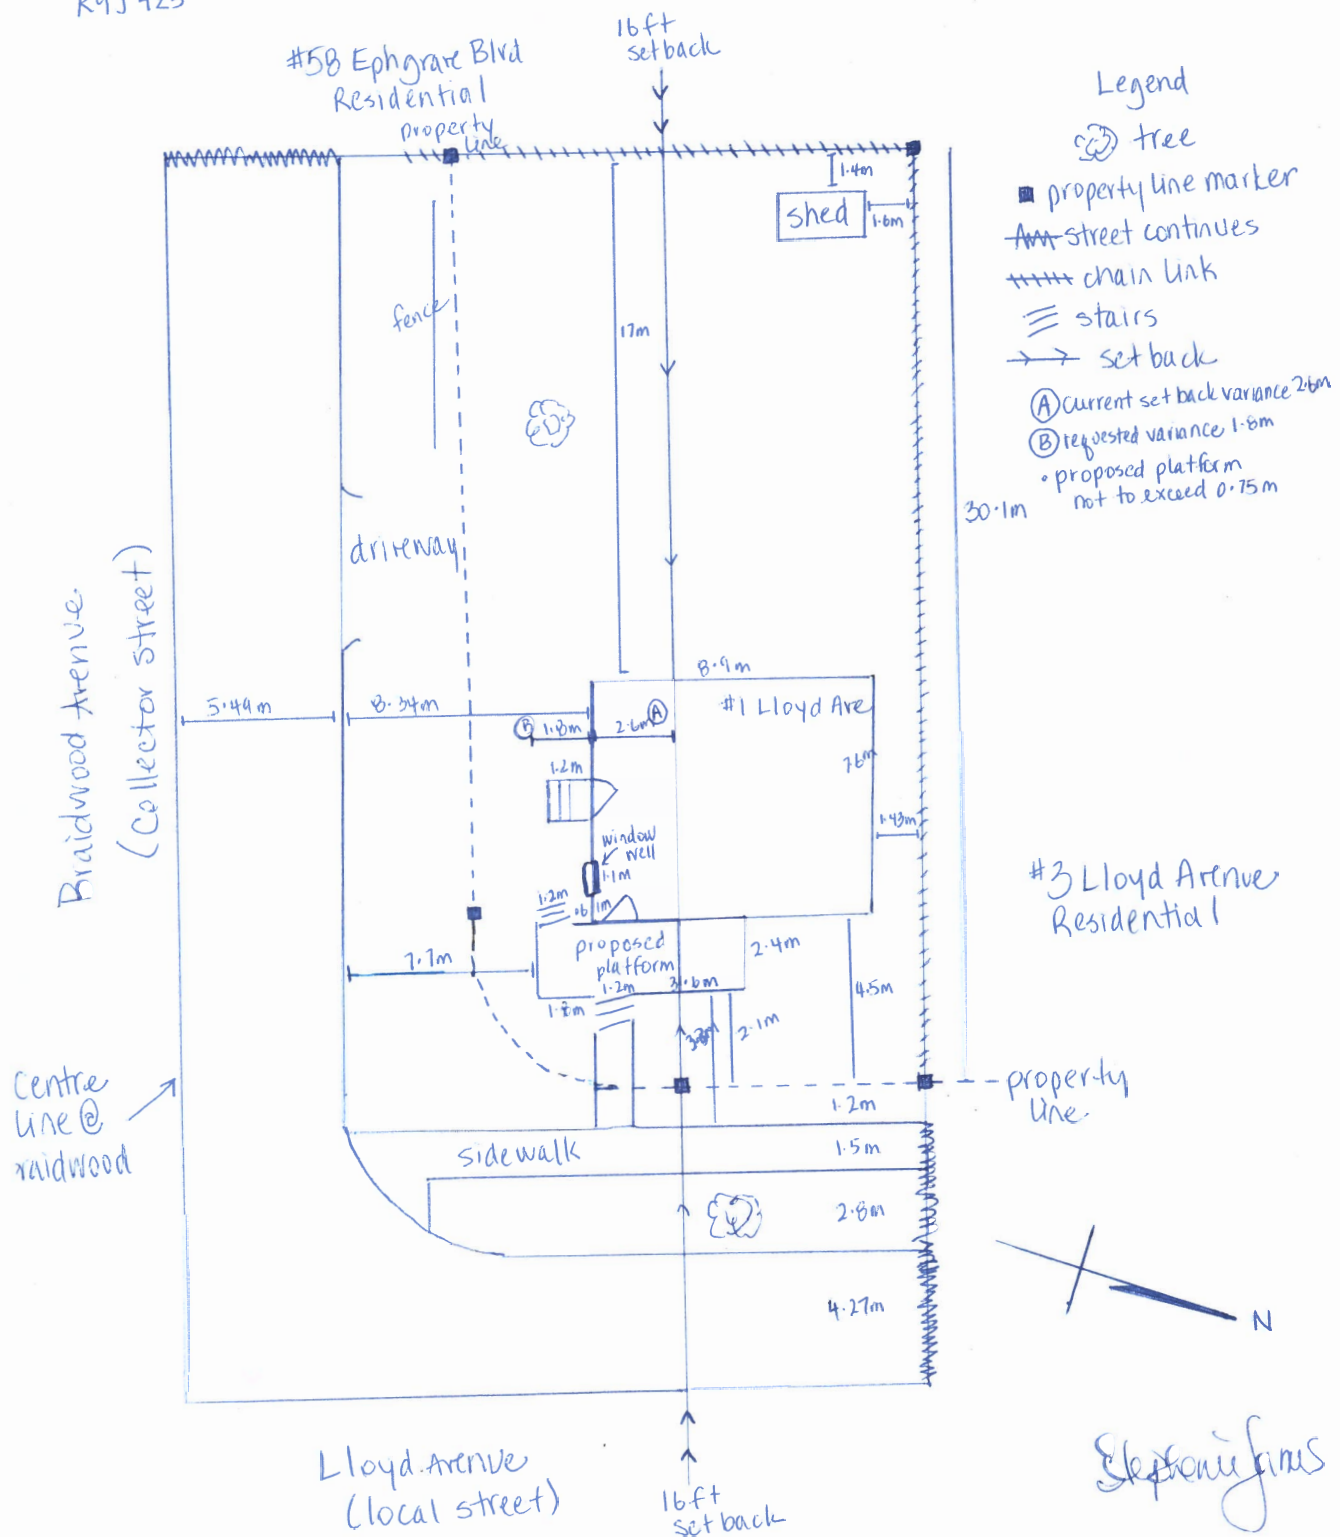 16ft
setback
#58 Ephgrave Blvd
Residential
property
line
Legend
tree
property line marker
street continues
chain link
stairs
set back
Ⓐ current set back variance 2.6m
Ⓑ requested variance 1.8m
• proposed platform
not to exceed 0.75m
1.4m
shed
1.6m
fence
17m
30.1m
driveway
Braidwood Avenue
(Collector street)
5.49m
8.34m
8.9m
#1 Lloyd Ave
Ⓑ 1.8m
2.6m Ⓐ
7.6m
1.2m
1.43m
window
well
1.1m
#3 Lloyd Avenue
Residential
1.2m
.6
1m
proposed
platform
2.4m
7.7m
1.2m
3.6m
1.8m
4.5m
2.1m
Centre
line @
raidwood
property
line
1.2m
sidewalk
1.5m
2.8m
4.27m
N
Lloyd Avenue
(local street)
16ft
setback